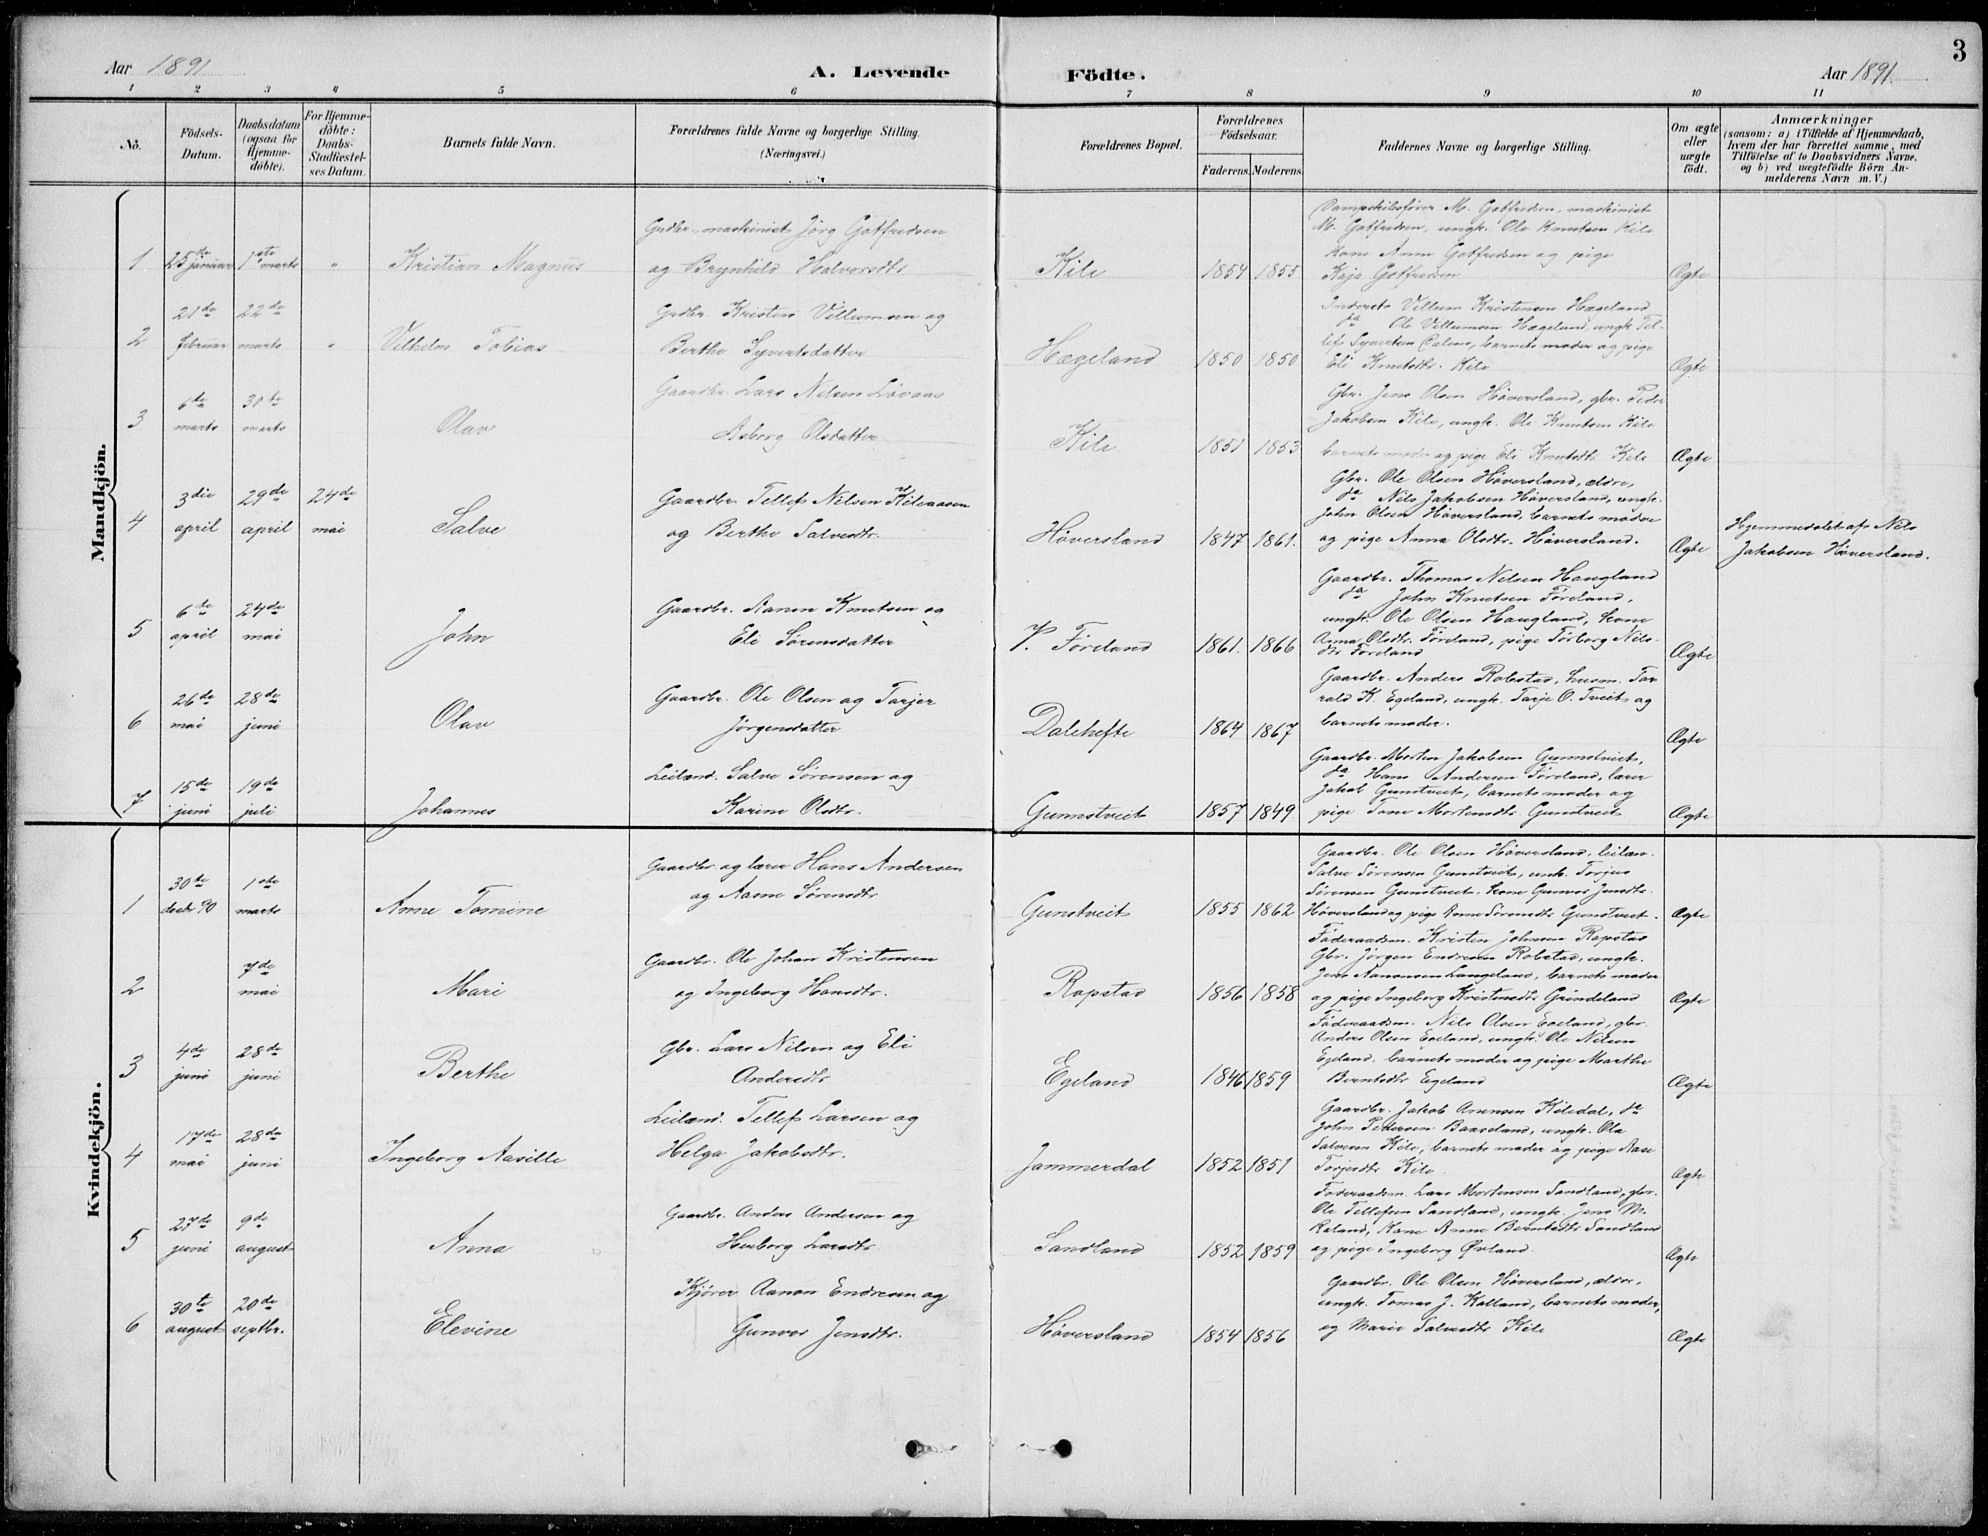 Aar 1891
A. Levende
Födte.
Aar 1891.
3
1 2 3 4 5 6 7 8 9 10 11
No.
Födsels-
Datum.
Daabsdatum
(ogsaa for
Hjemme-
döbte).
For Hjemme-
döbte:
Daabs-
Stadfæstel-
ses Datum.
Barnets fulde Navn.
Forældrenes fulde Navne og borgerlige Stilling.
(Næringsvei.)
Forældrenes Bopæl.
Forældrenes
Födselsaar.
Faderens. Moderens.
Faddernes Navne og borgerlige Stilling.
Om ægte
eller
uægte
födt.
Anmærkninger
(saasom: a) i Tilfælde af Hjemmedaab,
hvem der har forrettet samme, med
Tilföielse af to Daabsvidners Navne.
og b) ved uægtefödte Börn An-
melderens Navn m. V.)
Mandkjön.
1
25de januar
1ste marts
"
Kristian Magnus
Grdbr., maskinist Jörg Gotfredsen
og Brynhild Halvorsdtr
Kile
1854 1855
Dampskibsfører M. Gotfredsen, maskinist
M. Gotfredsen, ungk. Ole Knutsen Kile
Kone Anne Gotfredsen og pige
Kaja Gotfredsen
Ægte
2
21de februar
22de marts
"
Vilhelm Tobias
Grdbr. Kristen Villumsen og
Berthe Syvertsdatter
Hægeland
1850 1850
Inderste Villum Kristensen Hægeland
da Ole Villumsen Hægeland, ungk. Tel-
lef Syvertsen Dalene, barnets moder og pige
Eli Knutsdtr. Kile
Ægte
3
6te marts
30te marts
Olav
Gaardbr. Lars Nilsen Løvaas
Asborg Olsdatter
Kile
1851 1853
Gbr. Jens Olsen Höversland, gbr. Peder
Jakobsen Kile, ungk. Ole Knutsen Kile
barnets moder og pige Eli Knutsdtr Kile
Ægte
4
3die april
29de april
24de mai
Salve
Gaardbr. Tellef Nilsen Kileaasen
og Berthe Salvesdtr.
Höversland
1847 1861.
Gbr. Ole Olsen Höversland, ældre,
da Nils Jakobsen Höversland, ungk.
John Olsen Höversland, barnets moder
og pige Anna Olsdtr. Höversland.
Ægte
Hjemmedøbt af Nils
Jakobsen Höversland.
5
6te april
24de mai
John
Gaardbr. Aanon Knutsen og
Eli Sørensdatter
V. Føreland
1861. 1866
Gaardbr. Thomas Nilsen Haugland
da John Knutsen Føreland,
ungk. Ole Olsen Haugland, kone
Anna Olsdtr. Føreland, pige Torborg Nils-
dtr Føreland
Ægte
6
26de mai
28de juni
Olav
Gaardbr. Ole Olsen og Tarjer
Jørgensdatter
Dalehefte
1864 1867
Gaardbr. Anders Robstad, husm. Tor-
rald K. Egeland, ungk. Tarje O. Tveit og
barnets moder.
Ægte
7
15de juni
19de juli
Johannes
Leilænd. Salve Sørensen og
Karine Olsdtr.
Gunnstveit
1857 1849
Gaardbr. Morten Jakobsen Gunnstveit,
da Hans Andersen Føreland, lærer
Jakob Gunstveit, barnets moder og
pige Tone Mortensdtr Gunstveit
Ægte
Kvindekjön.
1
30te decbr 90
1ste marts
Anne Tomine
Gaardbr og lærer Hans Andersen
og Aasne Sørensdtr
Gunstveit
1855 1862
Gaardbr. Ole Olsen Höversland, leilæn.
Salve Sørensen Gunstveit, unk. Torjus
Sørensen Gunstveit. kone Gunvor Jensdtr.
Höversland og pige Anne Sørensdtr Gunstveit.
Ægte
2
7de mai
Mari
Gaardbr. Ole Johan Kristensen
og Ingeborg Hansdtr.
Rapstad
1856 1858
Föderaadsm. Kristen Johnsen Rapstad
Gbr. Jørgen Endresen Robstad, ungk.
Jens Aanonsen Langeland, barnets moder
og pige Ingeborg Kristensdtr Grindeland
Ægte
3
4de juni
28de juni
Berthe
Gbr. Lars Nilsen og Eli
Andersdtr
Egeland
1846. 1859
Föderaadsm. Nils Olsen Egeland, gbr.
Anders Olsen Egeland, ungk. Ole Nilsen
Egeland, barnets moder og pige Marthe
Berntsdtr Egeland
Ægte
4
17de mai
28de juni
Ingeborg Aasille
Leilænd. Tellef Larsen og
Helga Jakobsdtr.
Jammerdal
1852 1851
Gaardbr. Jakob Arensen Kiledal, da
John Pettersen Baaseland, ungk. Ola
Salvesen Kile, barnets moder og pige Aase
Torjusdtr Kile.
Ægte
5
27de juni
9de august
Anna
Gaardbr. Anders Andersen og
Herborg Larsdtr
Sandland
1852 1859
Föderaadsm. Lars Mortensen Sandland, gbr.
Ole Tellefsen Sandland, ungk. Jens M.
Røland, Kone Anne Berntsdtr Sandland
og pige Ingeborg Øvland.
Ægte
6
30te august
20de septbr.
Elevine
Kjører Aanon Endresen og
Gunvor Jensdtr.
Höversland
1854 1856
Gaardbr. Ole Olsen Höversland, ældre,
ungk. Tomas J. Kalland, barnets moder,
og Marie Salvesdtr Kile
Ægte